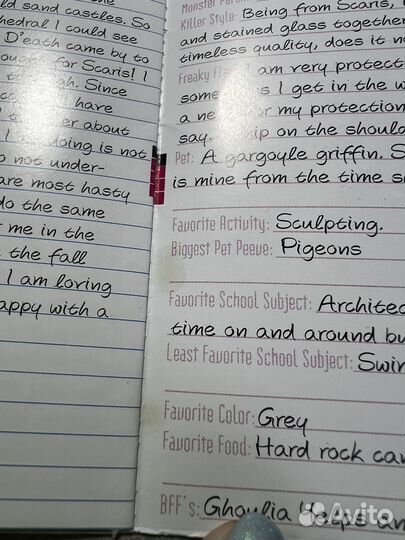 ld sand castles. So
hedral I could see
D'eath came by to
for Scaris! I
Since
have
about
doing is not
not under-
are most hasty
do the same
me in the
the fall
I am loving
appy with a
Monster
Killer Style: Being from Scaris,
and stained glass together
timeless quality, does it no
Freaky I am very protect
I get in the w
a my protection
say. on the should
Pet: A gargoyle griffin. S
is mine from the time s
Favorite Activity: Sculpting.
Biggest Pet Peeve: Pigeons
Favorite School Subject: Architec
time on and around bu
Least Favorite School Subject: Swi
Favorite Color: Grey
Favorite Food: Hard rock ca
BFF's: Ghoulia Yelps an
Avito